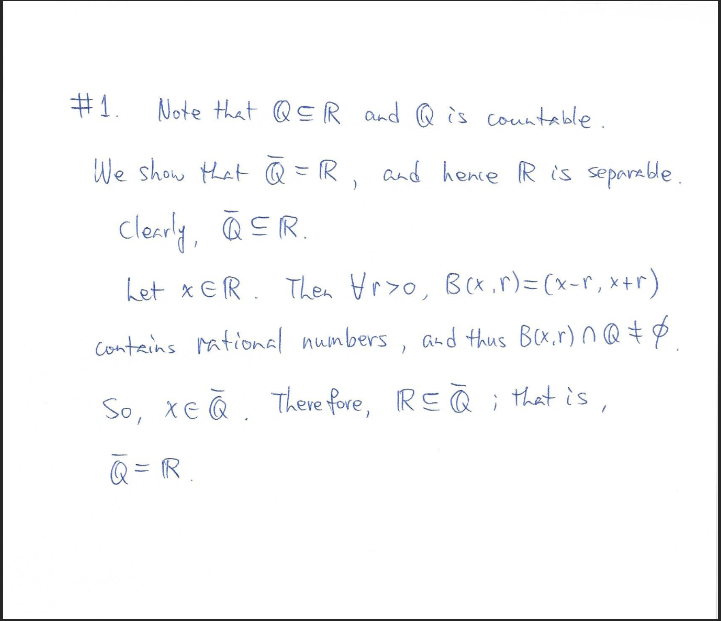 #1. Note that ℚ ⊆ ℝ and ℚ is countable.
We show that ℚ̄ = ℝ, and hence ℝ is separable.
Clearly, ℚ̄ ⊆ ℝ.
Let x ∈ ℝ. Then ∀r>0, B(x,r)=(x-r, x+r)
contains rational numbers, and thus B(x,r) ∩ ℚ ≠ ∅.
So, x ∈ ℚ̄. Therefore, ℝ ⊆ ℚ̄; that is,
ℚ̄ = ℝ.